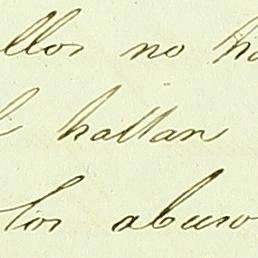 ellos no ha
hallan
los abuso